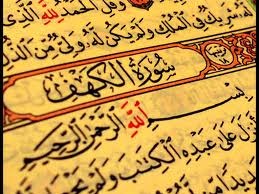 وَقُلِ الْحَمْدُ لِلَّهِ الَّذِي
لَّهُ شَرِيكٌ فِي الْمُلْكِ وَلَمْ يَكُن لَّهُ وَلِيٌّ مِّنَ الذُّلِّ
سُورَةُ الْكَهْفِ
بِسْمِ اللَّهِ الرَّحْمَٰنِ الرَّحِيمِ
أَنزَلَ عَلَىٰ عَبْدِهِ الْكِتَابَ وَلَمْ يَجْعَل